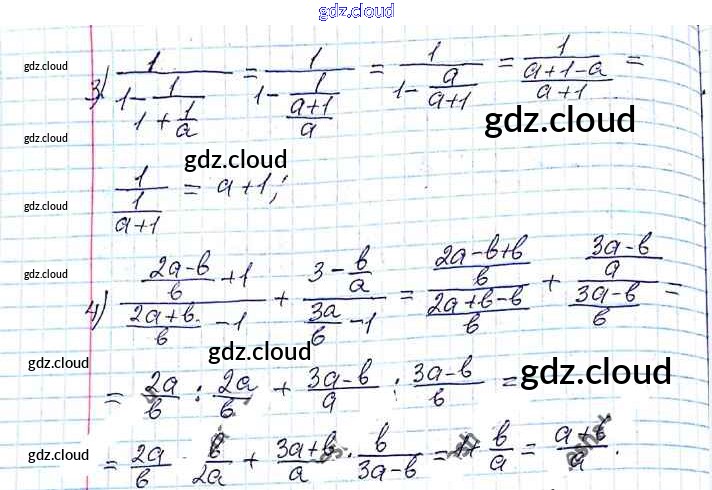 gdz.cloud
3) \frac{1}{1-\frac{1}{1+\frac{1}{a}}} = \frac{1}{1-\frac{1}{\frac{a+1}{a}}} = \frac{1}{1-\frac{a}{a+1}} = \frac{1}{\frac{a+1-a}{a+1}} =
gdz.cloud
gdz.cloud
gdz.cloud
gdz.cloud
\frac{1}{\frac{1}{a+1}} = a+1;
gdz.cloud
4) \frac{\frac{2a-b}{b}+1}{\frac{2a+b}{b}-1} + \frac{3-\frac{b}{a}}{\frac{3a}{b}-1} = \frac{\frac{2a-b+b}{b}}{\frac{2a+b-b}{b}} + \frac{\frac{3a-b}{a}}{\frac{3a-b}{b}} =
gdz.cloud
gdz.cloud
gdz.cloud
= \frac{2a}{b} : \frac{2a}{b} + \frac{3a-b}{a} : \frac{3a-b}{b} =
gdz.cloud
gdz.cloud
= \frac{2a}{b} · \frac{b}{2a} + \frac{3a+b}{a} · \frac{b}{3a-b} = 1+ \frac{b}{a} = \frac{a+b}{a}.
gdz.cloud